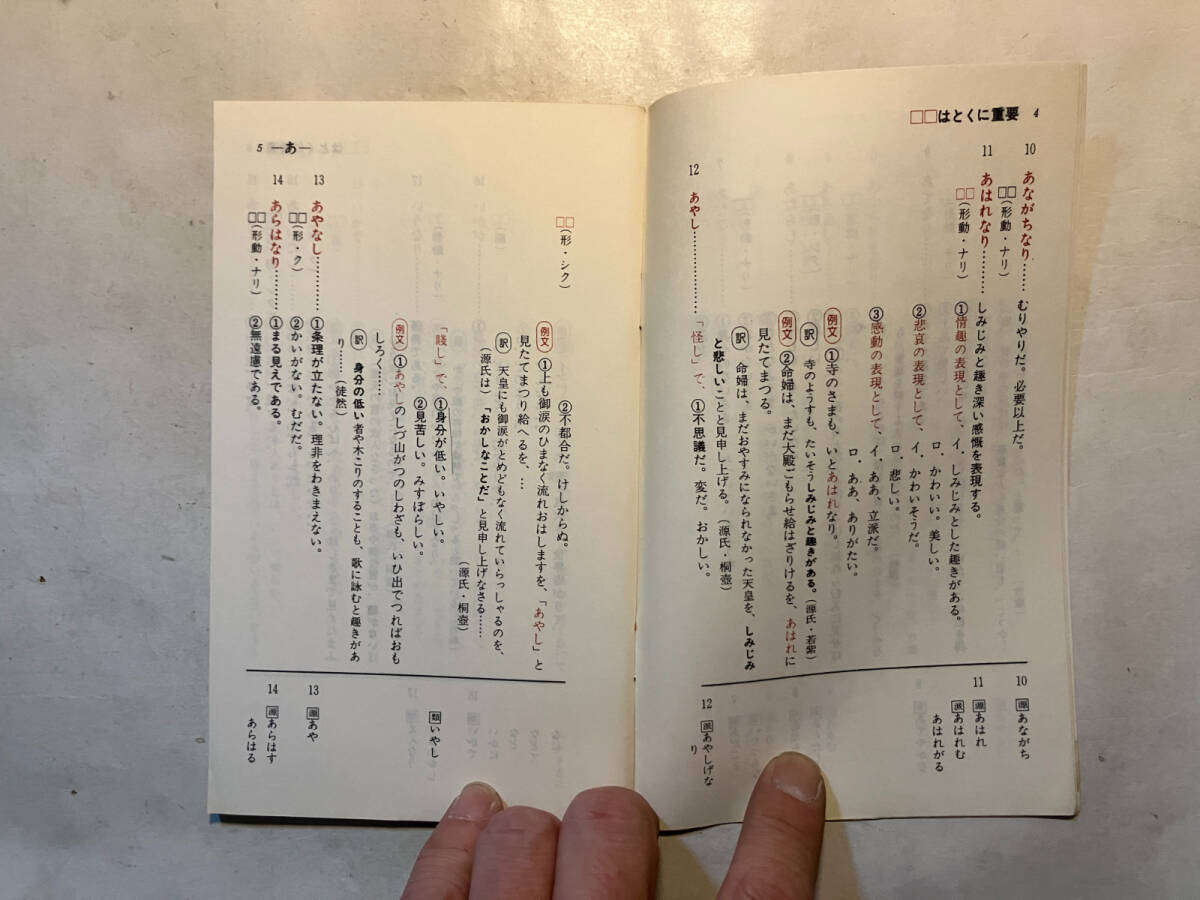 □□はとくに重要　4
10　あながちなり……むりやりだ。必要以上だ。
□□(形動・ナリ)
11　あはれなり………しみじみと趣き深い感慨を表現する。
□□(形動・ナリ)
①情趣の表現として、イ、しみじみとした趣きがある。
ロ、かわいい。美しい。
②悲哀の表現として、イ、かわいそうだ。
ロ、悲しい。
③感動の表現として、イ、ああ、立派だ。
ロ、ああ、ありがたい。
例文 ①寺のさまも、いとあはれなり。
訳 寺のようすも、たいそうしみじみと趣きがある。(源氏・若紫)
例文 ②命婦は、まだ大殿ごもらせ給はざりけるを、あはれに
見たてまつる。
訳 命婦は、まだおやすみになられなかった天皇を、しみじみ
と悲しいことと見申し上げる。(源氏・桐壺)
12　あやし…………「怪し」で、①不思議だ。変だ。おかしい。
10 源 あながち
11 源 あはれ
派 あはれむ
あはれがる
12 派 あやしげな
り
5　―あ―
□□(形・シク)
②不都合だ。けしからぬ。
例文 ①上も御涙のひまなく流れおはしますを、「あやし」と
見たてまつり給へるを、…
訳 天皇にも御涙がとめどもなく流れていらっしゃるのを、
(源氏は)「おかしなことだ」と見申し上げなさる……
(源氏・桐壺)
「賤し」で、①身分が低い。いやしい。
②見苦しい。みすぼらしい。
例文 ①あやしのしづ山がつのしわざも、いひ出でつればおも
しろく……
訳 身分の低い者や木こりのすることも、歌に詠むと趣きがあ
り……(徒然)
13　あやなし…………①条理が立たない。理非をわきまえない。
□□(形・ク)　②かいがない。むだだ。
14　あらはなり………①まる見えである。
□□(形動・ナリ)　②無遠慮である。
類 いやし
13 源 あや
14 源 あらはす
あらはる